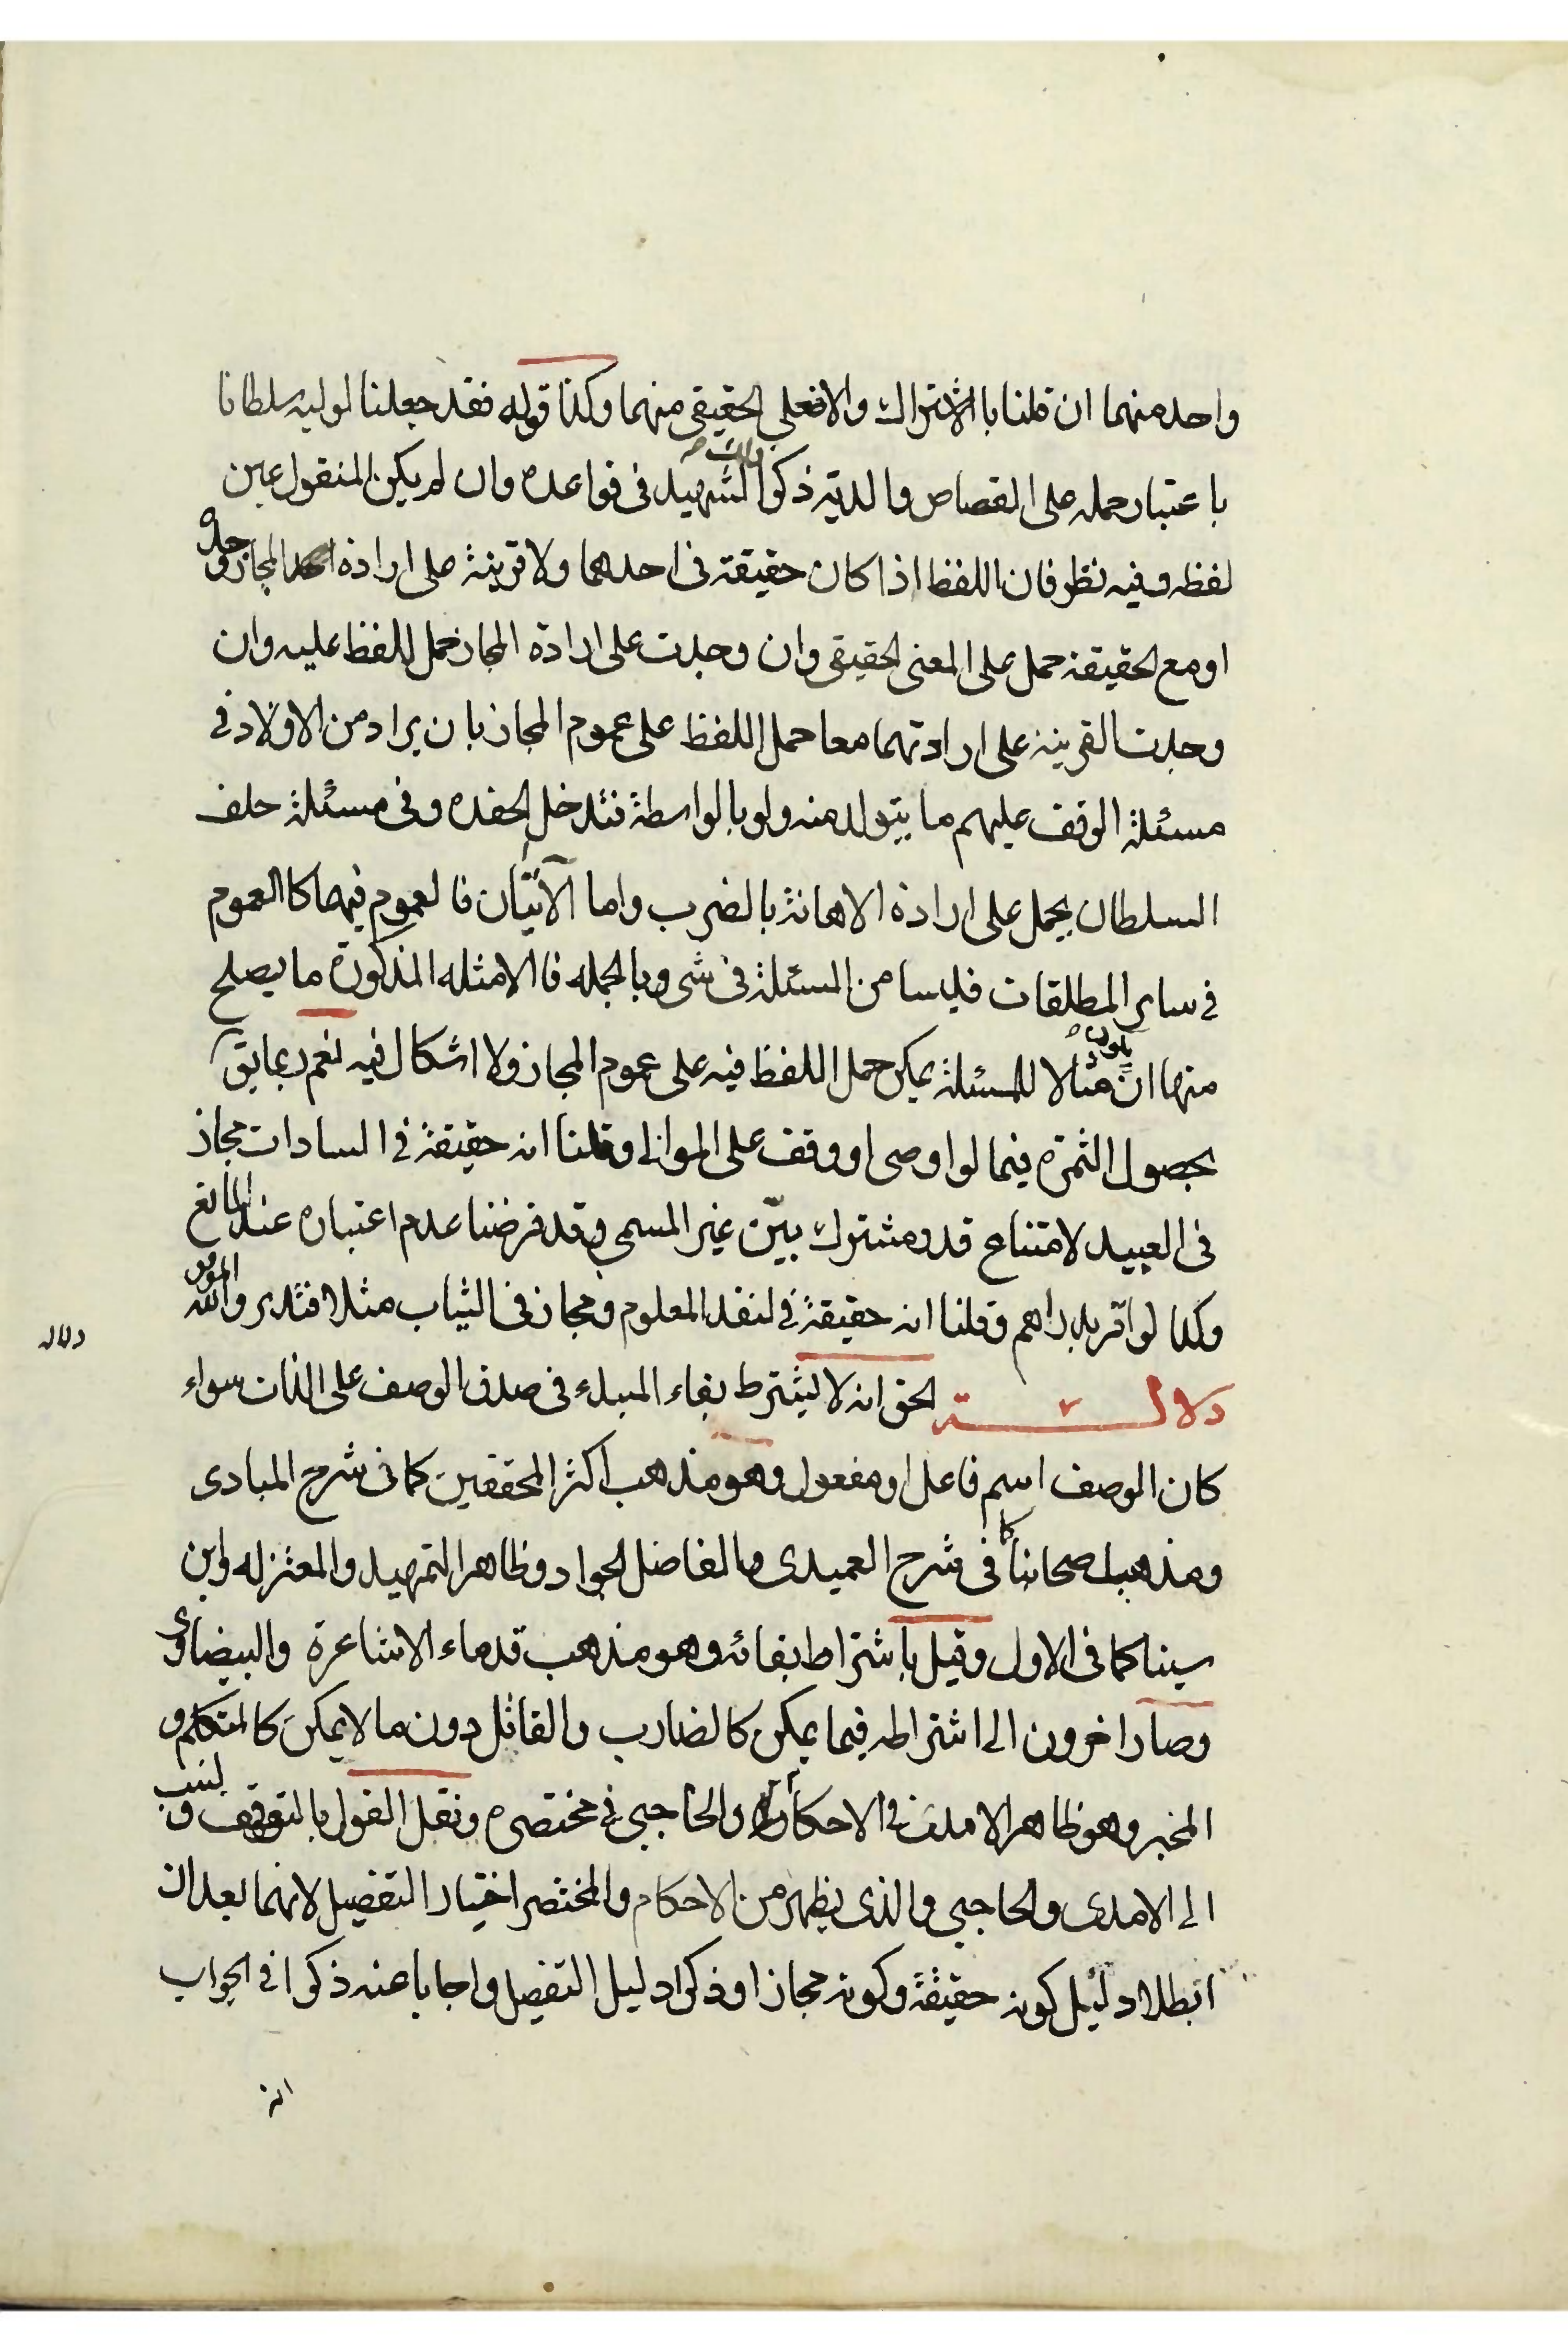 واحد منهما ان قلنا بالاشتراك والا فعلى الحقيقي منهما وكذا قوله فقد جعلنا لوليه سلطانا
باعتبار حمله على القصاص والدية ذكر ذلك الشهيد في قواعده وان لم يكن المنقول عين
لفظه وفيه نظر فان اللفظ اذا كان حقيقة في احدهما ولا قرينة على ارادة المجاز وحده
او مع الحقيقة حمل على المعنى الحقيقي وان وجدت على ارادة المجاز حمل اللفظ عليه وان
وجدت القرينة على ارادتهما معا حمل اللفظ على عموم المجاز بان يراد من الاولاد في
مسئلة الوقف عليهم ما يتولد منه ولو بالواسطة فتدخل الحفده وفي مسئلة حلف
السلطان يحمل على ارادة الاهانة بالضرب واما الآيتان فالعموم فيهما كالعموم
في ساير المطلقات فليسا من المسئلة في شي وبالجمله فالامثله المذكورة ما يصلح
منها ان يكون مثالا للمسئلة يمكن حمل اللفظ فيه على عموم المجاز ولا اشكال فيه نعم ربما يق
بحصول الثمرة فيما لو اوصى او وقف على الموالي وقلنا انه حقيقة في السادات مجاز
في العبيد لامتناع قدر مشترك بيّن غير المسمى وقد فرضنا عدم اعتباره عند المانع
وكذا لو اقر بدراهم وقلنا انه حقيقة في النقد المعلوم ومجاز في الثياب مثلا فتدبر والله الموفق
دلالـــة الحق انه لا يشترط بقاء المبدء في صدق الوصف على الذات سواء
دلاله
كان الوصف اسم فاعل او مفعول وهو مذهب اكثر المحققين كما في شرح المبادى
ومذهب اصحابنا كما في شرح العميدى والفاضل الجواد وظاهر التمهيد والمعتزله وابن
سينا كما في الاول وقيل باشتراط بقائه وهو مذهب قدماء الاشاعرة والبيضاوى
وصار اخرون الى اشتراطه فيما يمكن كالضارب والقاتل دون ما لا يمكن كالمتكلم و
المخبر وهو ظاهر الامدى في الاحكام والحاجبي في مختصره ونقل القول بالتوقف ونسب
الى الامدى والحاجبي والذى يظهر من الاحكام والمختصر اختيار التفصيل لانهما بعد ان
ابطلا دليل كونه حقيقة وكونه مجازا وذكرا دليل التفصيل واجابا عنه ذكرا في الجواب
انه